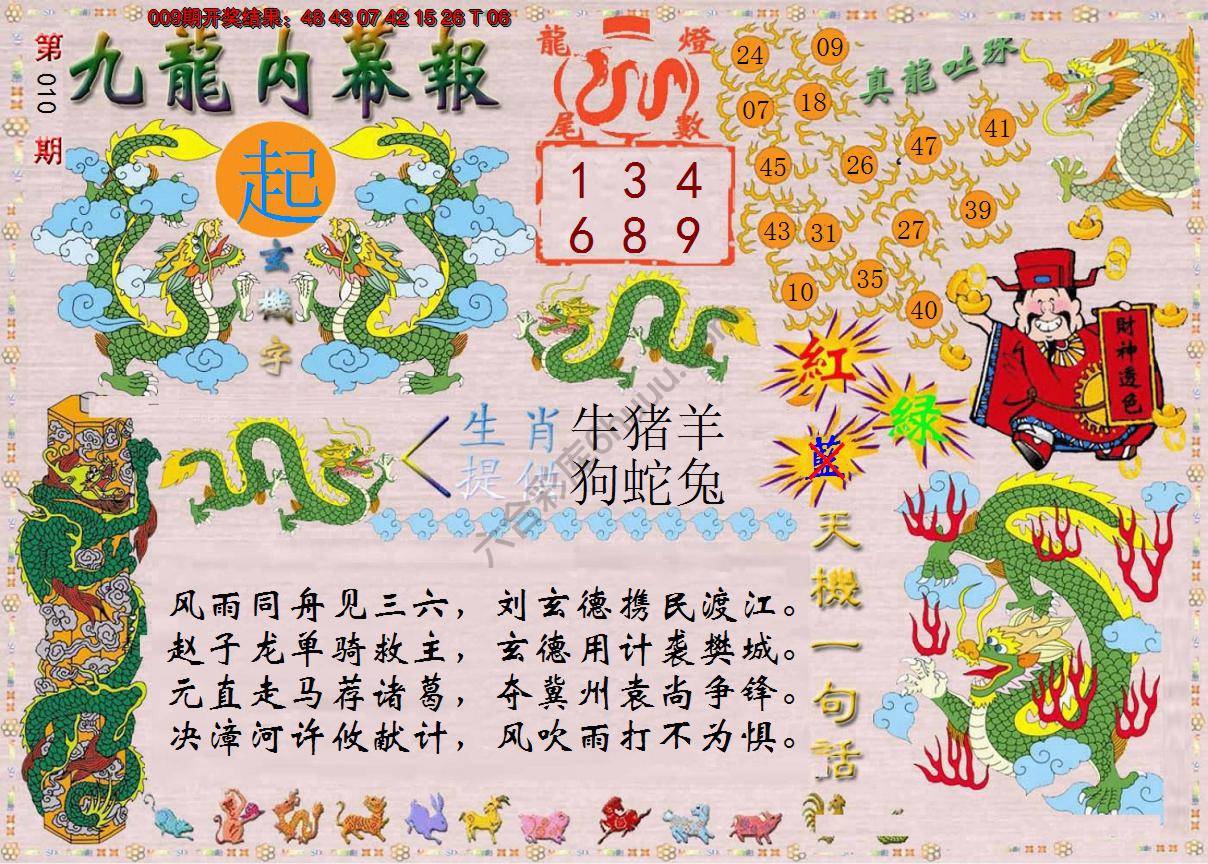 009期开奖结果：48 43 07 42 15 26 T 06
第010期
九龍内幕報
起
玄機字
龍燈
尾數
1 3 4
6 8 9
真龍吐珠
24 09
07 18
45 26 47 41
43 31 27 39
10 35 40
財神透色
紅
綠
藍
生肖 牛猪羊
提供 狗蛇兔
天機一句話
风雨同舟见三六，刘玄德携民渡江。
赵子龙单骑救主，玄德用计袭樊城。
元直走马荐诸葛，夺冀州袁尚争锋。
决漳河许攸献计，风吹雨打不为惧。